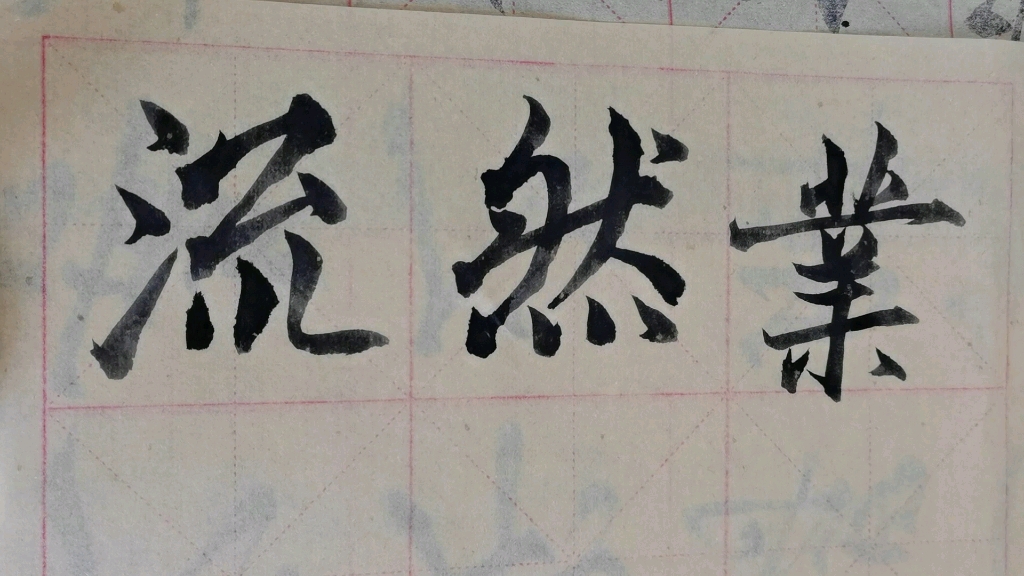 流然業